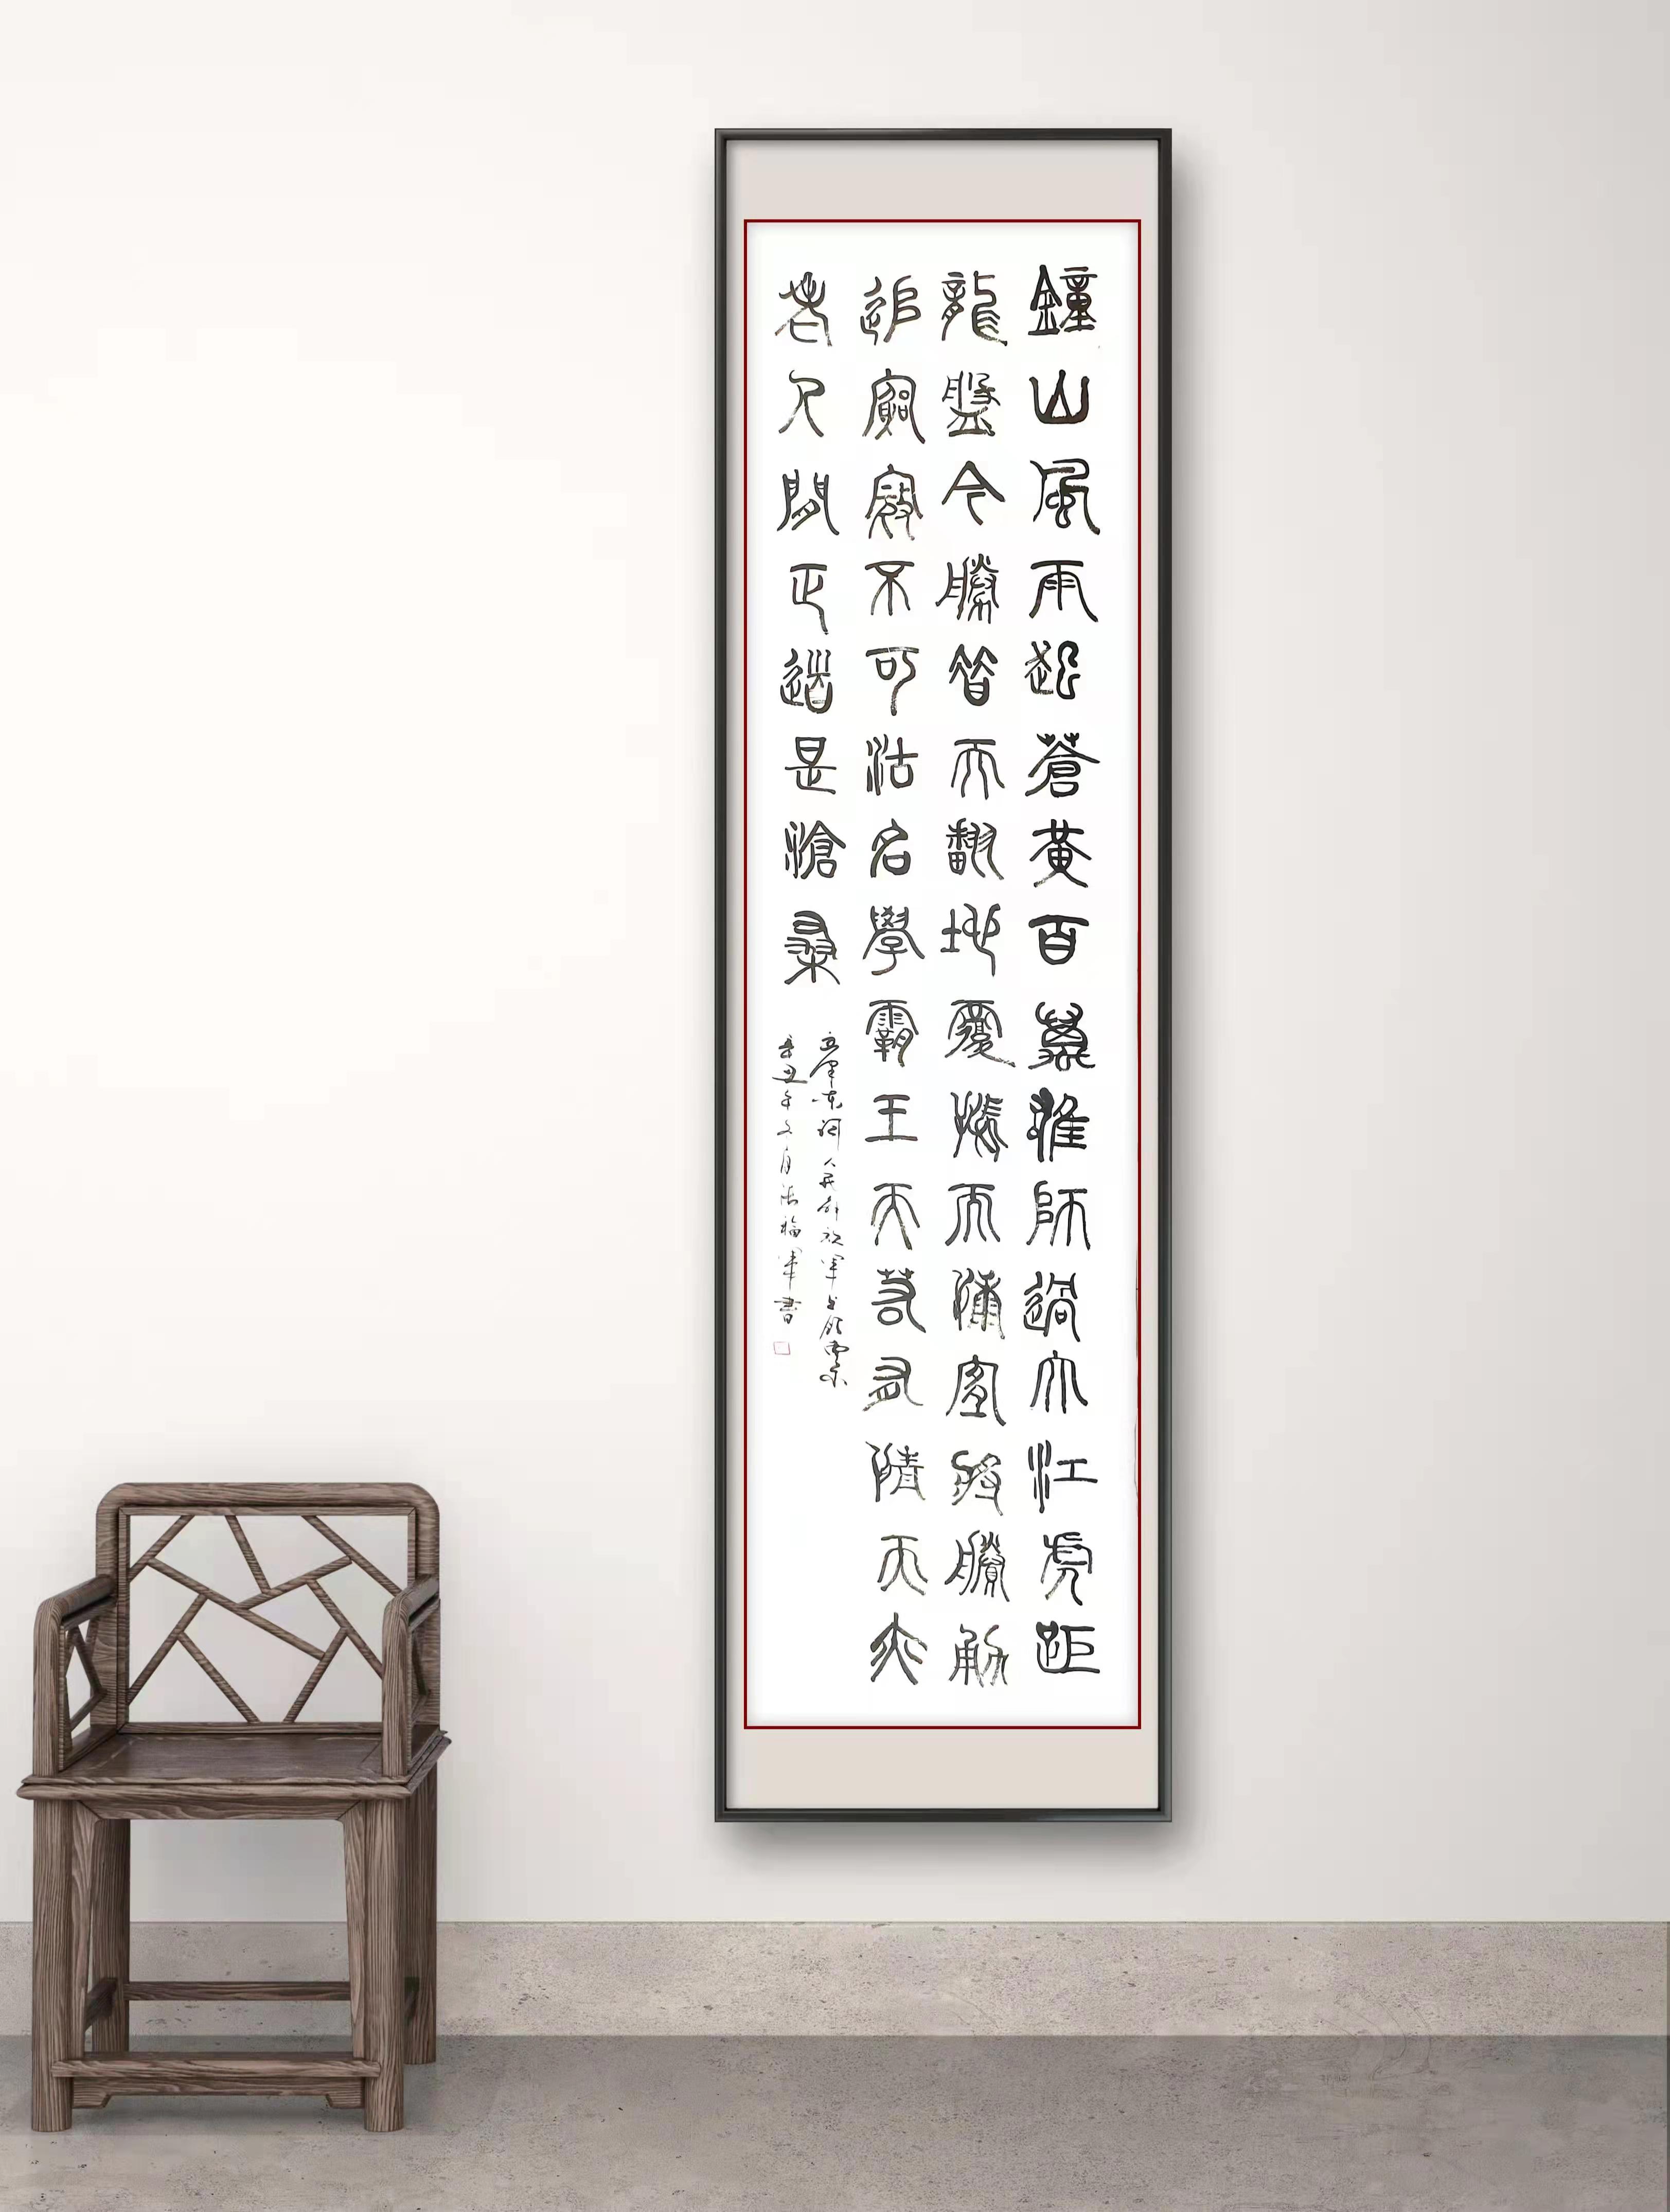 鐘山風雨起蒼黃百萬雄師過大江虎距
龍盤今勝昔天翻地覆慨而慷宜將勝勇
追窮寇不可沽名學霸王天若有情天亦
老人間正道是滄桑
毛澤東詞人民解放軍占領南京
辛丑年月軍書